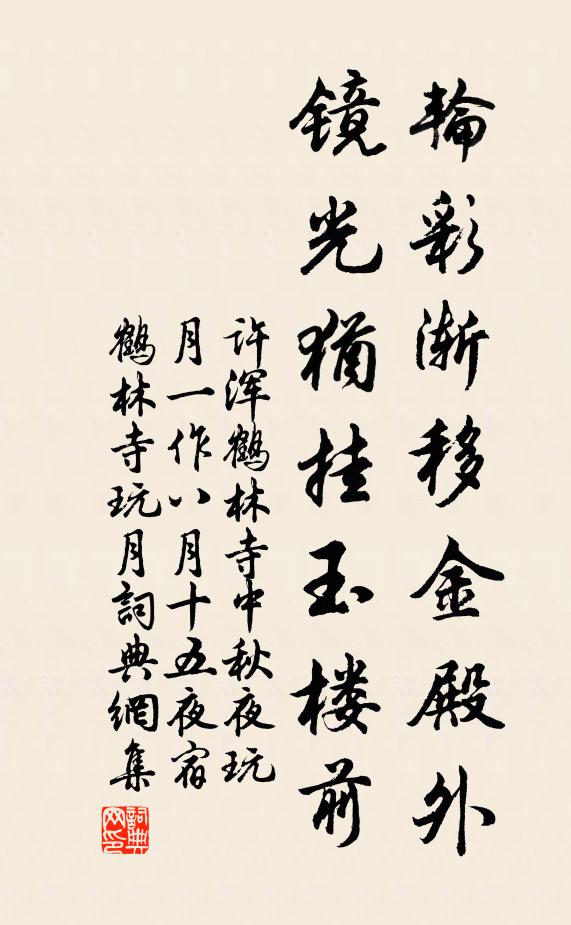 輪彩漸移金殿外
鏡光猶挂玉楼前
许浑鶴林寺中秋夜玩
月一作八月十五夜宿
鶴林寺玩月詞典網集
詞典网印